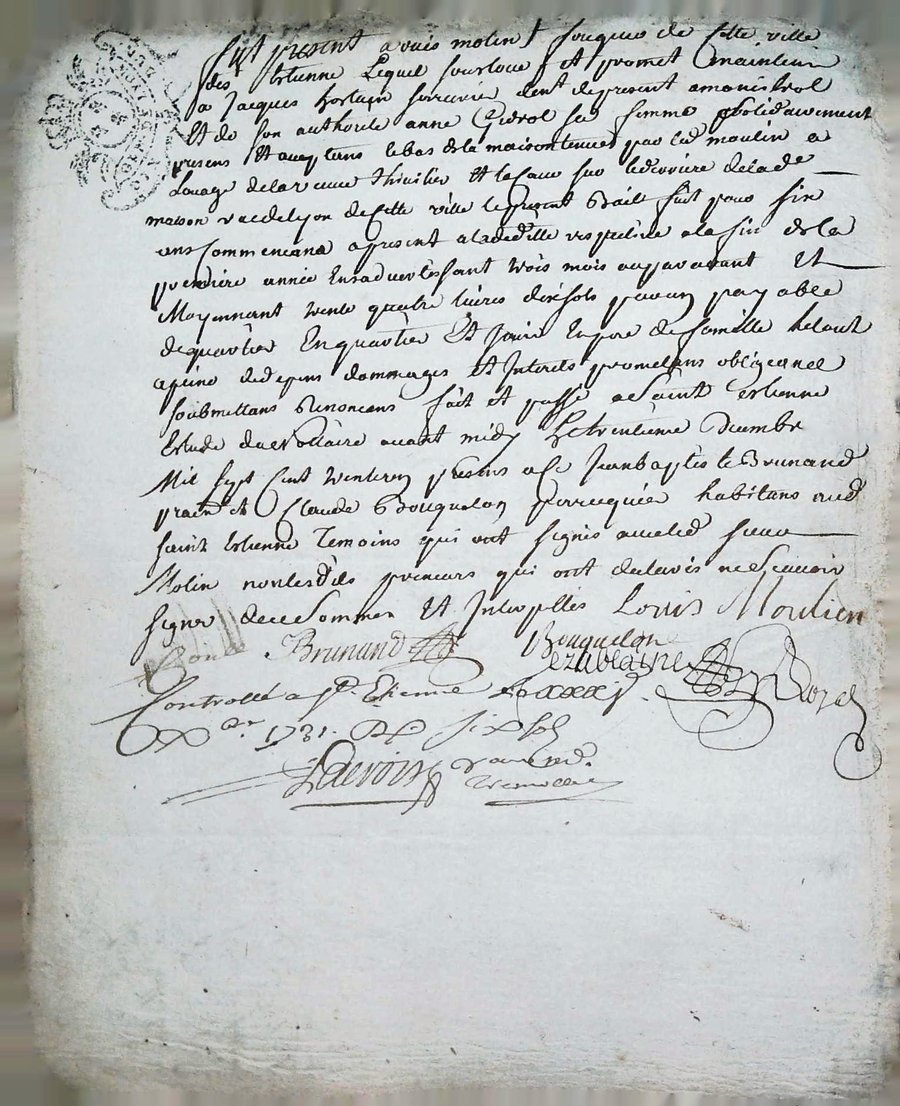 fut present Louis molin fouques de cette ville
de st Estienne Lequel sourloue et promet maintenir
a Jacques serrurier de present a monistrol
Et de son authorite anne sa femme solidairement
presens Et aceptans le bas de la maison tenue par led moulin a
Louage de la veuve thivilier Et la cave sur le derriere de lade
maison rue de lyon de cette ville le present Bail fait pour six
ans commencans a present a la fin de la
premiere année En sadvertissant trois mois auparavant Et
Moyennant trente quatre livres dix sols par an payable
de quartier En quartier Et Jouir En pere de famille
a peine de depens dommages et Interets promettans obligeance
soubmettans Renoncans fait et passé a Saint Estienne
Etude du notaire avant midy Le trentieme decembre
Mil Sept Cent trente un presens a Ce Jean baptiste Brunand
et Claude Bouquelon perruquier habitans aud
saint Estienne Temoins qui ont signés avec led sieur
Molin non lesdits preneurs qui ont declarés ne Scavoir
signer de ce Sommés Et Interpellés Louis Moulien
Brunand Bouquelon
Controllé a St Etienne le xxxxj
xbre 1731. R six sols